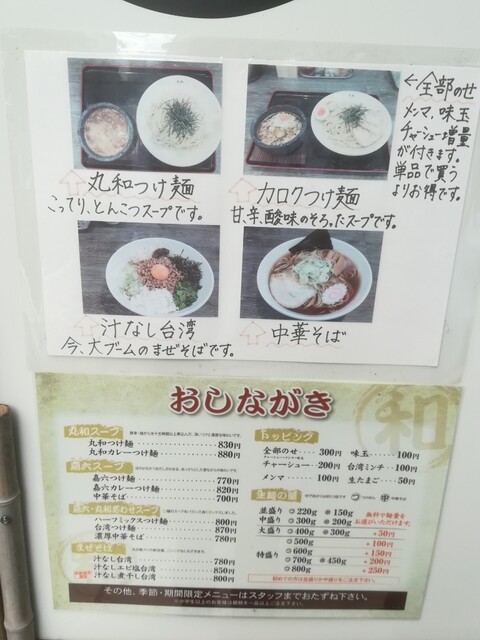 ←全部のせ
メンマ、味玉
チャーシュー増量
が付きます。
単品で買う
よりお得です。
丸和つけ麺
こってり、とんこつスープです。
カロクつけ麺
甘、辛、酸味のそろったスープです。
汁なし台湾
今、大ブームのまぜそばです。
中華そば
おしながき
和
丸和スープ
丸和つけ麺 830円
丸和カレーつけ麺 880円
嘉六スープ
嘉六つけ麺 770円
嘉六カレーつけ麺 820円
中華そば 700円
嘉六・丸和あわせスープ
ハーフミックスつけ麺 800円
台湾つけ麺 870円
濃厚中華そば 780円
まぜそば
汁なし台湾 780円
汁なしエビ塩台湾 850円
汁なし煮干し台湾 800円
トッピング
全部のせ 300円
チャーシュー 200円
メンマ 100円
味玉 100円
台湾ミンチ 100円
生たまご 50円
並盛り 220g 150g
中盛り 300g 200g
無料で麺量を
お選びいただけます。
大盛り 400g 300g +50円
特盛り
500g +100円
600g +150円
700g 450g +200円
800g +250円
その他、季節・期間限定メニューはスタッフまでおたずね下さい。